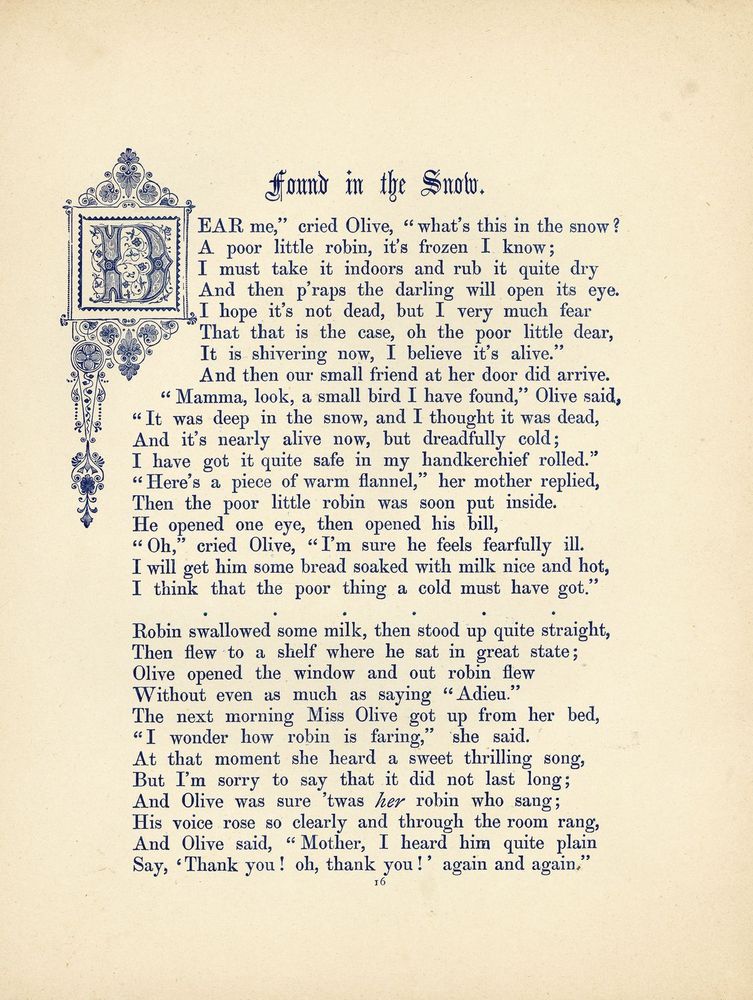 Found in the Snow.
DEAR me,” cried Olive, “what's this in the snow?
A poor little robin, it's frozen I know;
I must take it indoors and rub it quite dry
And then p'raps the darling will open its eye.
I hope it's not dead, but I very much fear
That that is the case, oh the poor little dear,
It is shivering now, I believe it's alive.”
And then our small friend at her door did arrive.
“Mamma, look, a small bird I have found,” Olive said,
“It was deep in the snow, and I thought it was dead,
And it's nearly alive now, but dreadfully cold;
I have got it quite safe in my handkerchief rolled.”
“Here's a piece of warm flannel,” her mother replied,
Then the poor little robin was soon put inside.
He opened one eye, then opened his bill,
“Oh,” cried Olive, “I'm sure he feels fearfully ill.
I will get him some bread soaked with milk nice and hot,
I think that the poor thing a cold must have got.”
. . . . . .
Robin swallowed some milk, then stood up quite straight,
Then flew to a shelf where he sat in great state;
Olive opened the window and out robin flew
Without even as much as saying “Adieu.”
The next morning Miss Olive got up from her bed,
“I wonder how robin is faring,” she said.
At that moment she heard a sweet thrilling song,
But I'm sorry to say that it did not last long;
And Olive was sure 'twas her robin who sang;
His voice rose so clearly and through the room rang,
And Olive said, “Mother, I heard him quite plain
Say, ‘Thank you! oh, thank you!’ again and again.”
16